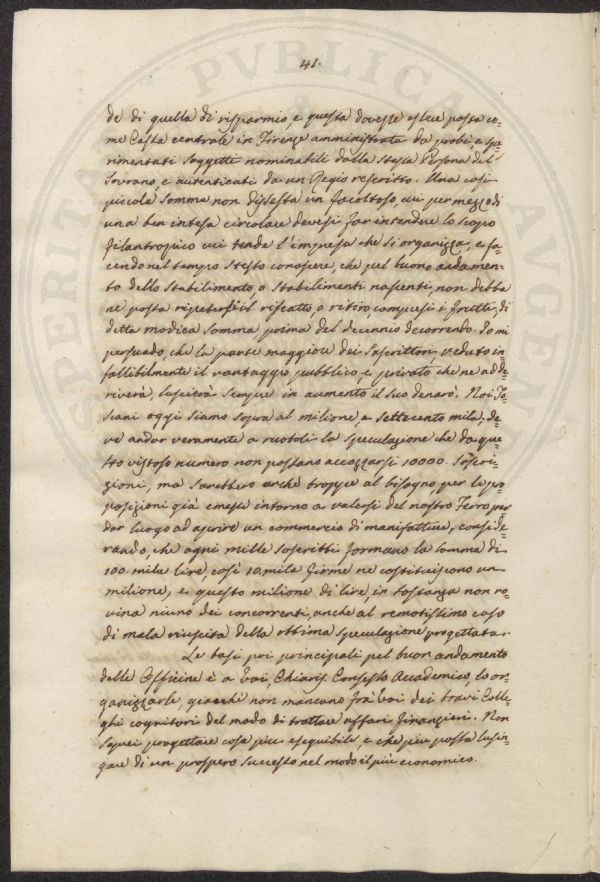 41.
de di quella di risparmio, e questa dovesse essere posta co-
me Cassa centrale in Firenze amministrata da probi, e spe-
rimentati soggetti nominabili dalla stessa Persona del
Sovrano, e autenticati da un Regio rescritto. Una così
piccola somma non dissesta un facoltoso, cui per mezzo di
una ben intesa circolare devesi far intendere lo scopo
filantropico cui tende l'impresa che si organizza, e fa-
cendo nel tempo stesso conoscere, che pel buono andamen-
to dello stabilimento, o stabilimenti nascenti, non debba
ne possa ripetersi il riscatto, o ritiro compresi i frutti, di
detta modica somma prima del decennio decorrendo. Io mi
persuado, che la parte maggiore dei soscrittori, veduto in-
fallibilmente il vantaggio pubblico, e privato che ne ad de-
riverà, lascierà sempre in aumento il suo denaro. Noi To-
scani oggi siamo sopra al milione, e settecento mila, de-
ve andar veramente a ruotoli la speculazione che da que-
sto vistoso numero non possano accozzarsi 10000. soscri-
zioni, ma sarebbero anche troppe al bisogno, per le pro-
posizioni già emesse intorno a valersi del nostro Ferro per
dar luogo ad aprire un commercio di manifatture, conside-
rando, che ogni mille soscritti formano la somma di
100. mila lire, così 10. mila firme ne costituiscono un
milione, e questo milione di lire, in sostanza non ro-
vina niuno dei concorrenti, anche al remotissimo caso
di mala riuscita della ottima speculazione progettata.
Le basi poi principali pel buon andamento
delle Officine è a Voi, Chiaris. Consesso Accademico, lo or-
ganizzarle, giacchè non mancano frà Voi dei bravi Colle-
ghi cognitori del modo di trattare affari finanzieri. Non
saprei progettare cosa più eseguibile, e che più possa lusin-
gare di un prospero successo nel modo il più economico.
PVBLICA